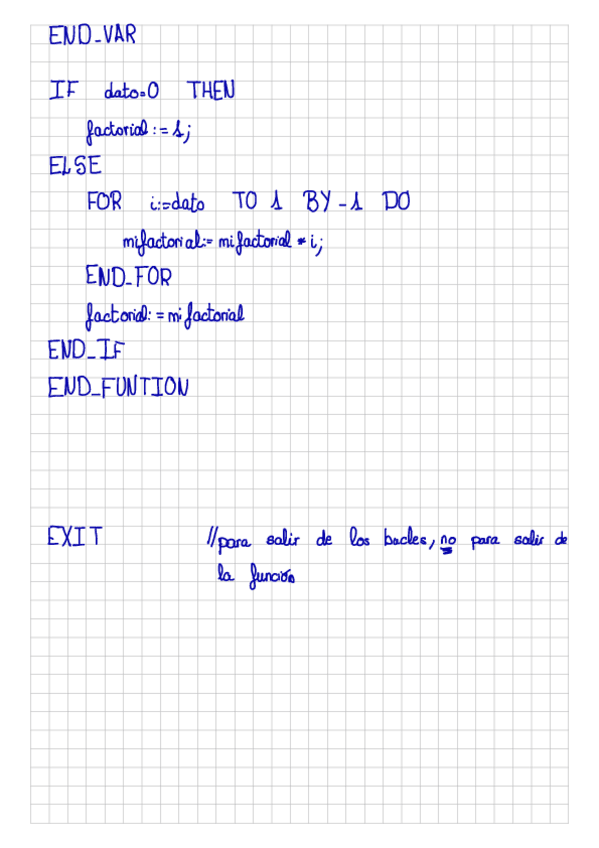 END_VAR
IF dato=0 THEN
factorial := 1;
ELSE
FOR i:=dato TO 1 BY -1 DO
mifactorial:= mifactorial * i;
END_FOR
factorial: = mifactorial
END_IF
END_FUNTION
EXIT //para salir de los bucles, no para salir de
la función